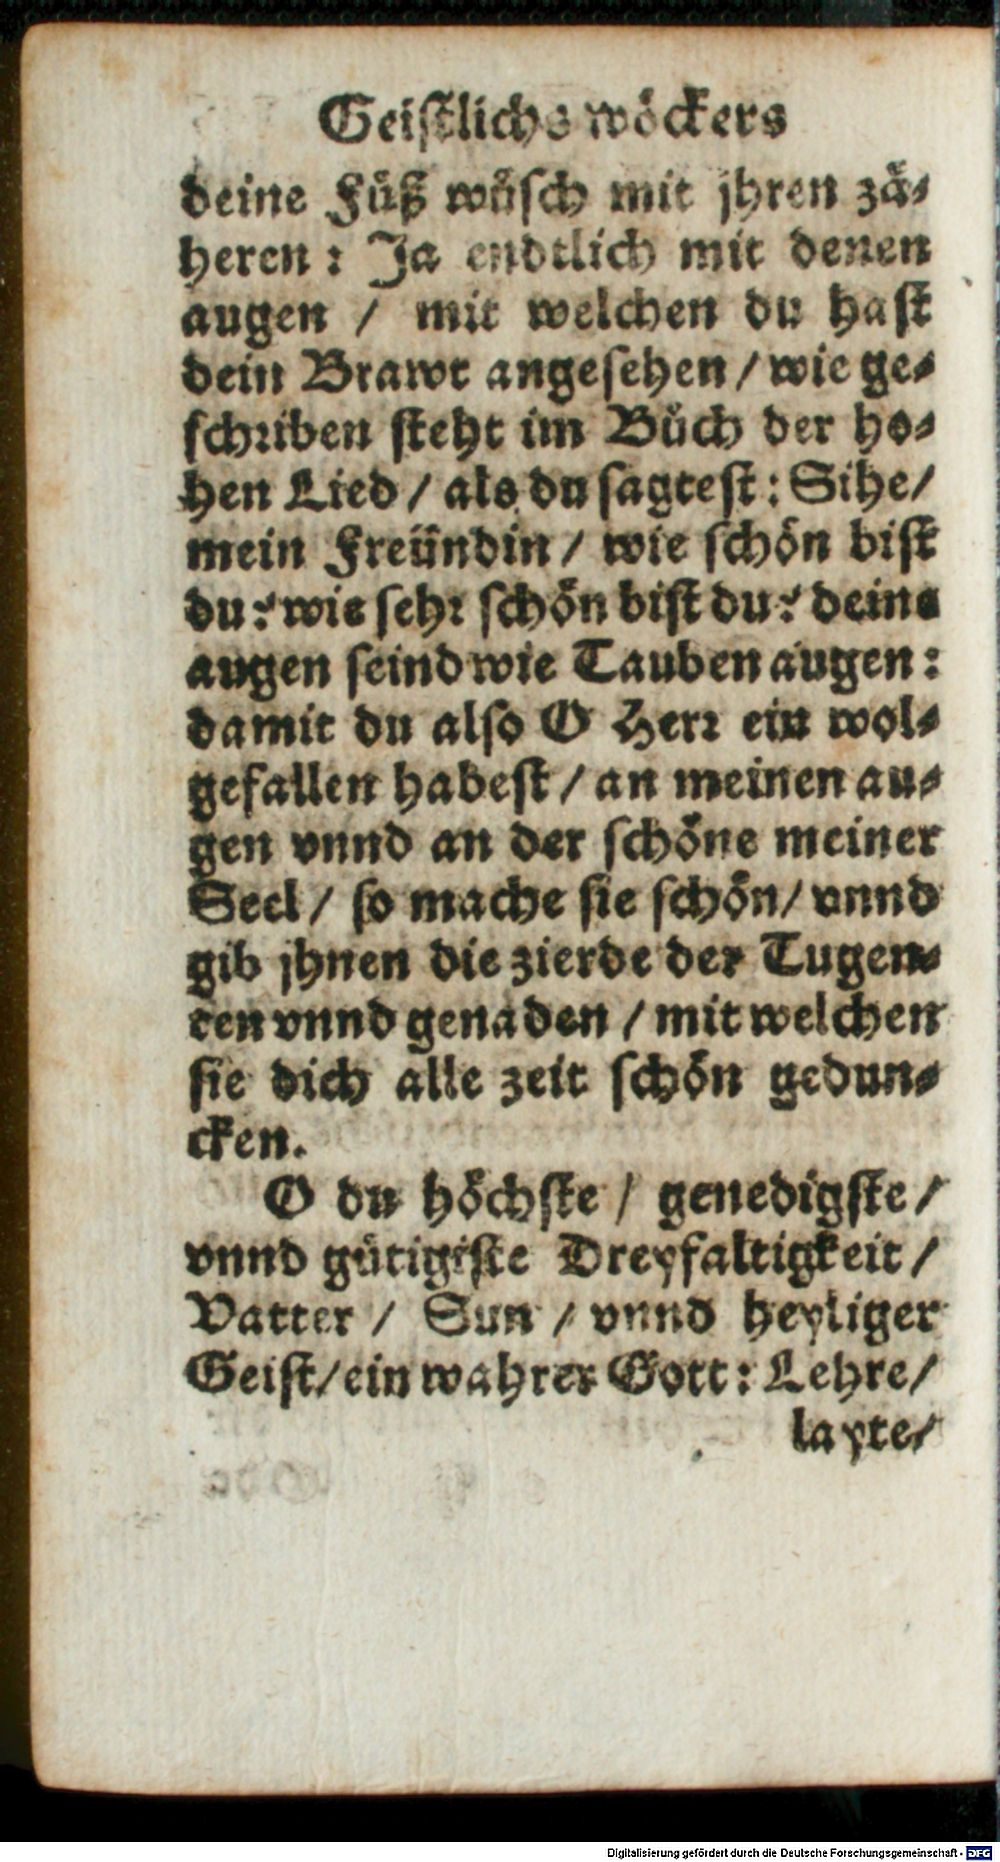 Geistlichs wöckers
deine Füß wüsch mit jhren zä-
heren: Ja endtlich mit denen
augen / mit welchen du hast
dein Brawt angesehen / wie ge-
schriben steht im Büch der ho-
hen Lied / als du sagtest: Sihe /
mein Freündin / wie schön bist
du? wie sehr schön bist du? deine
augen seind wie Tauben augen:
damit du also O Herr ein wol-
gefallen habest / an meinen au-
gen vnnd an der schöne meiner
Seel / so mache sie schön / vnnd
gib jhnen die zierde der Tugen-
ten vnnd genaden / mit welchen
sie dich alle zeit schön gedun-
cken.
O du höchste / genedigste /
vnnd gütigiste Dreyfaltigkeit /
Vatter / Sun / vnnd heyliger
Geist / ein wahrer Gott: Lehre /
layte /
Digitalisierung gefördert durch die Deutsche Forschungsgemeinschaft - DFG